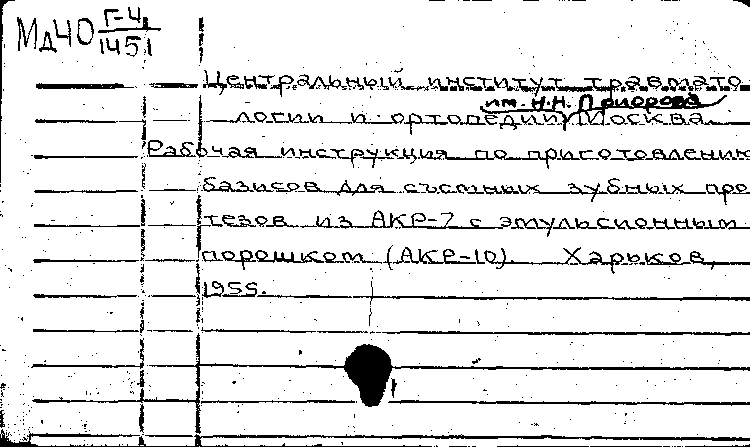 Мд40 Г-4
1451
Центральный институт травмато
им. Н.Н. Приорова
логии и ортопедии, Москва.
Рабочая инструкция по приготовлению
базисов для съемных зубных про
тезов из АКР-7 с эмульсионным
порошком (АКР-10). Харьков,
1955.